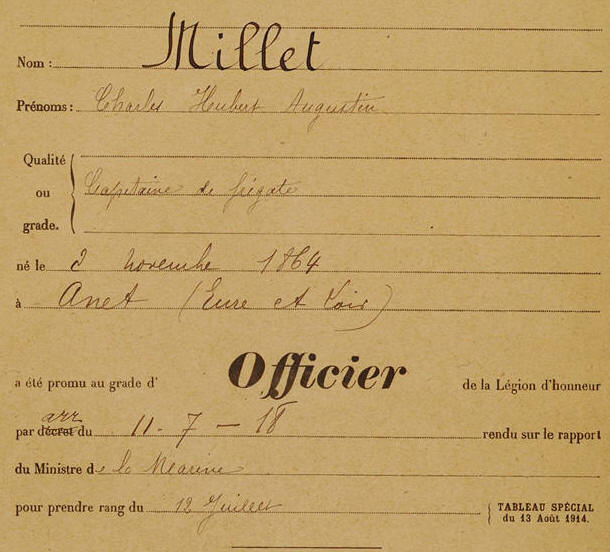 Nom : Millet
Prénoms : Charles Hubert Augustin
Qualité
ou Capitaine de frégate
grade.
né le 2 novembre 1864
à Anet (Eure et Loir)
a été promu au grade d' Officier de la Légion d'honneur
arr
par décret du 11-7-18 rendu sur le rapport
du Ministre de la Marine
pour prendre rang du 12 Juillet TABLEAU SPÉCIAL
du 13 Août 1914.